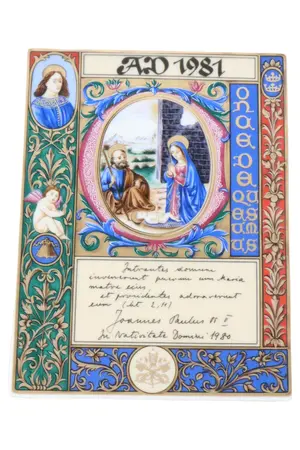 AD 1981
Intrantes domum
invenerunt puerum cum Maria
matre eius
et procidentes adoraverunt
eum (Mt 2, 11)
Joannes Paulus PP. II
In Nativitate Domini 1980